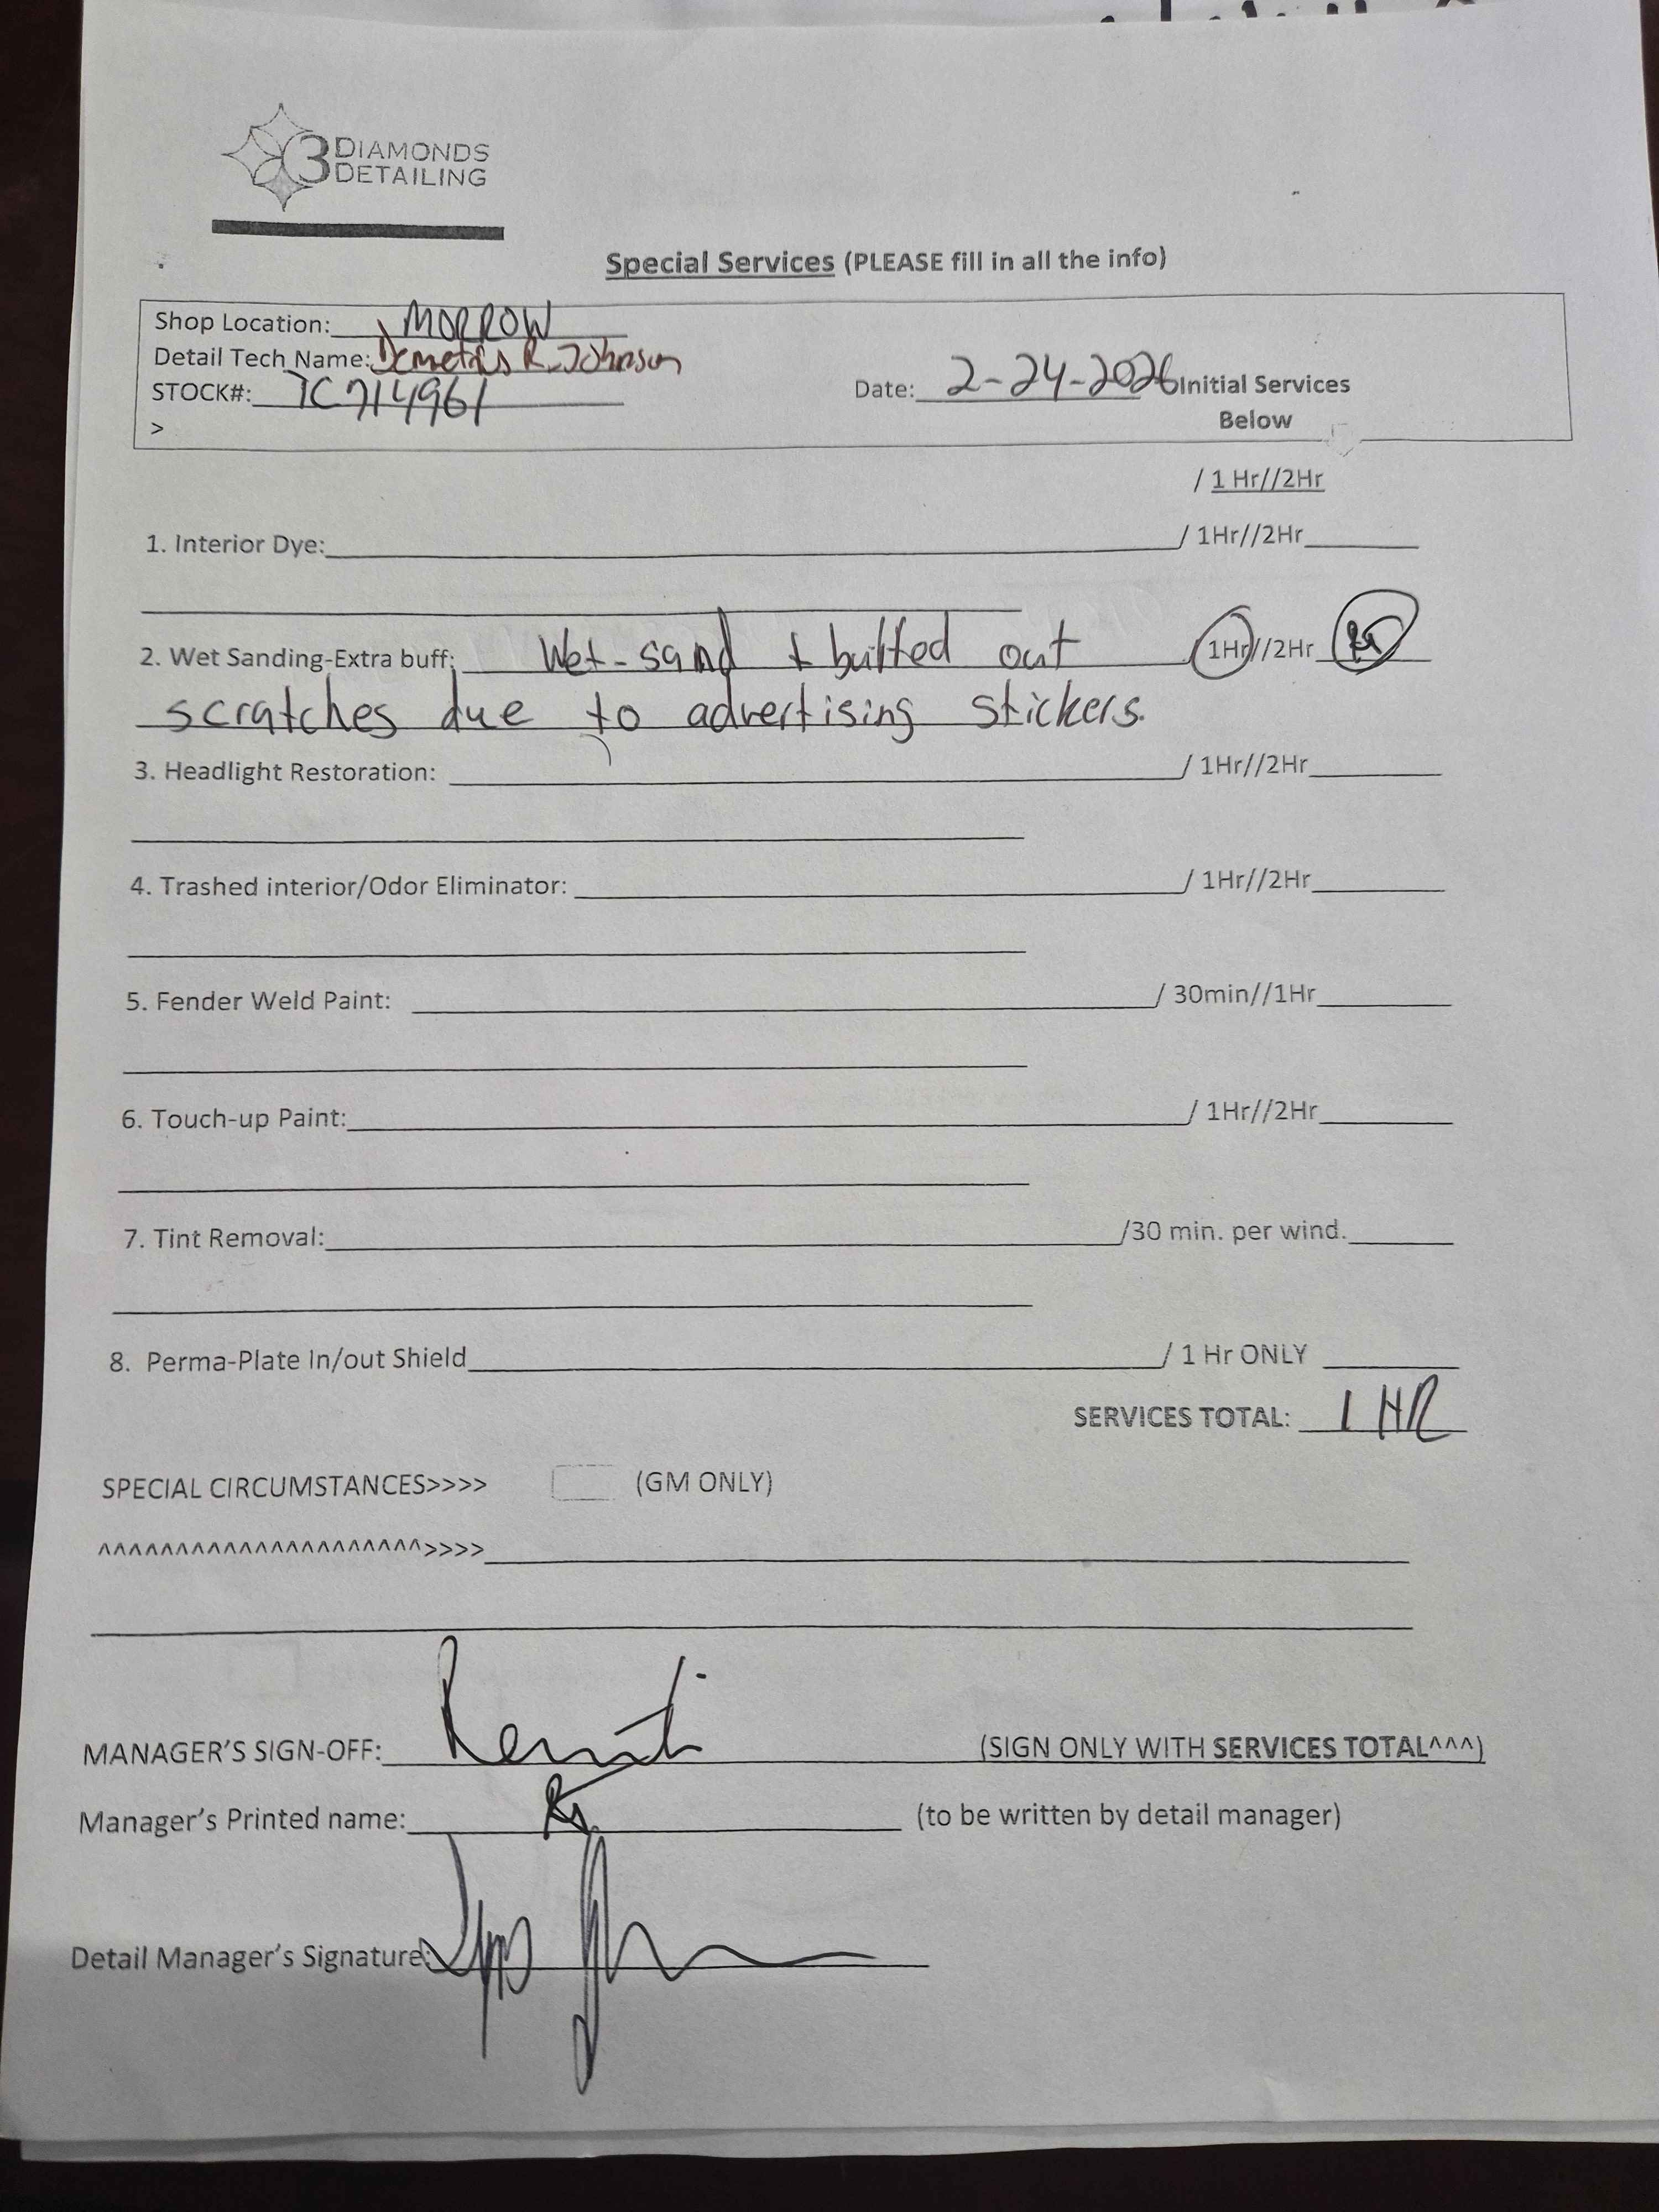 3 DIAMONDS
DETAILING
Special Services (PLEASE fill in all the info)
Shop Location: MORROW
Detail Tech Name: Demetrius R. Johnson
STOCK#: TC714961
Date: 2-24-2026 Initial Services
Below
>
/ 1 Hr//2Hr
1. Interior Dye: / 1Hr//2Hr
2. Wet Sanding-Extra buff: Wet-sand + buffed out / 1Hr//2Hr
scratches due to advertising stickers.
3. Headlight Restoration: / 1Hr//2Hr
4. Trashed interior/Odor Eliminator: / 1Hr//2Hr
5. Fender Weld Paint: / 30min//1Hr
6. Touch-up Paint: / 1Hr//2Hr
7. Tint Removal: /30 min. per wind.
8. Perma-Plate In/out Shield / 1 Hr ONLY
SERVICES TOTAL: 1 HR
SPECIAL CIRCUMSTANCES>>>> (GM ONLY)
^^^^^^^^^^^^^^^^^^^^^>>>>
MANAGER'S SIGN-OFF: (SIGN ONLY WITH SERVICES TOTAL^^^)
Manager's Printed name: (to be written by detail manager)
Detail Manager's Signature: